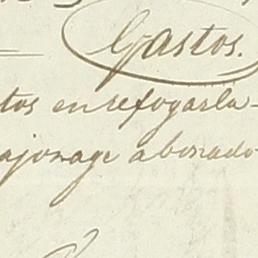 Gastos.
tos en refogarla-
ajonage abonado